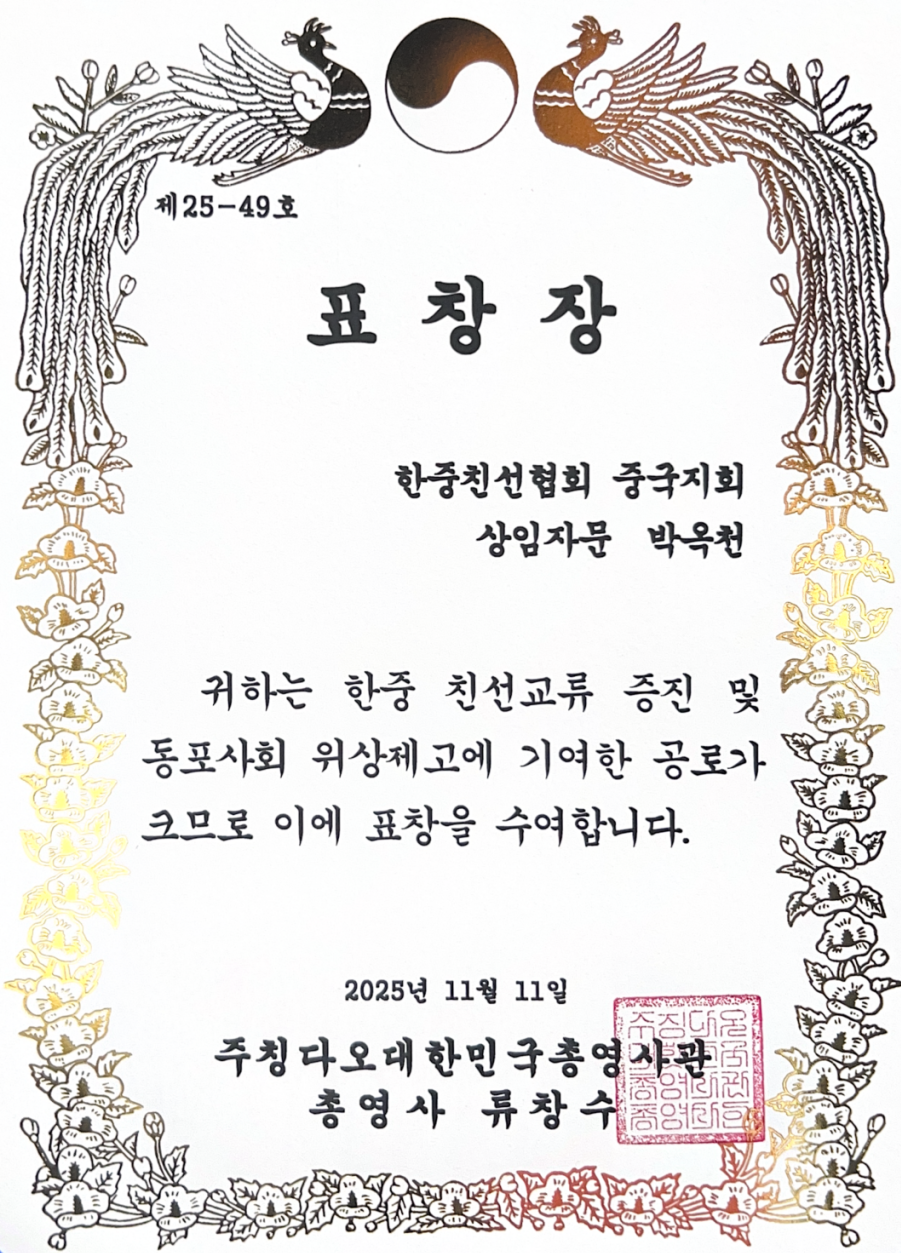 제25-49호
표 창 장
한중친선협회 중국지회
상임자문 박옥천
귀하는 한중 친선교류 증진 및
동포사회 위상제고에 기여한 공로가
크므로 이에 표창을 수여합니다.
2025년 11월 11일
주칭다오대한민국총영사관
총영사 류창수